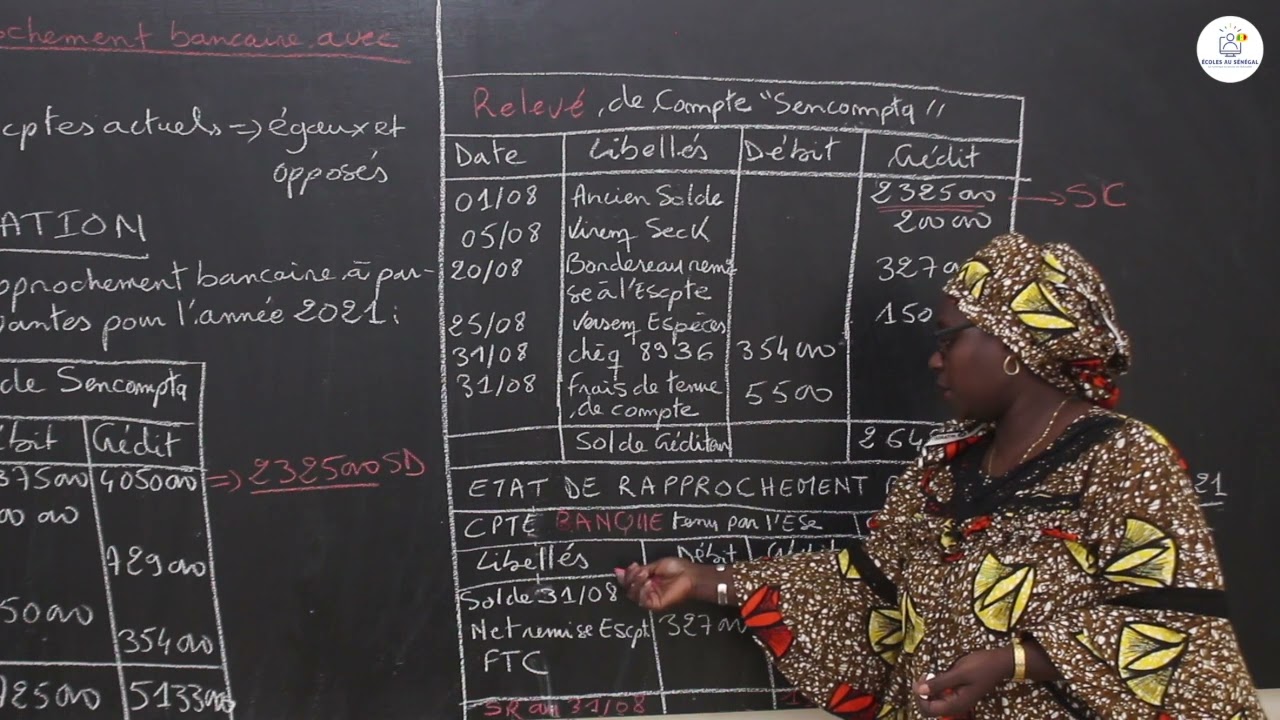 ochement bancaire avec
cptes actuels => égaux et
opposés
ATION
pprochement bancaire à par-
vantes pour l'année 2021:
de Sencompta
ébit Crédit
375000 4050000 => 2325000 SD
00 000
729000
50000
354000
725000 5133000
Relevé de Compte "Sencompta"
Date Libellés Débit Crédit
01/08 Ancien Solde 2325000 → SC
05/08 Virem Seck 200000
20/08 Bordereau remi 327
se à l'Escpte
25/08 Versem Espèces 150
31/08 chèq 8936 354000
31/08 frais de tenue 5500
de compte
Solde Créditeur 264
ETAT DE RAPPROCHEMENT 21
CPTE BANQUE tenu par l'Ese
Libellés Débit Crédit
Solde 31/08
Net remise Escpt 327000
FTC
SR au 31/08
ÉCOLES AU SÉNÉGAL